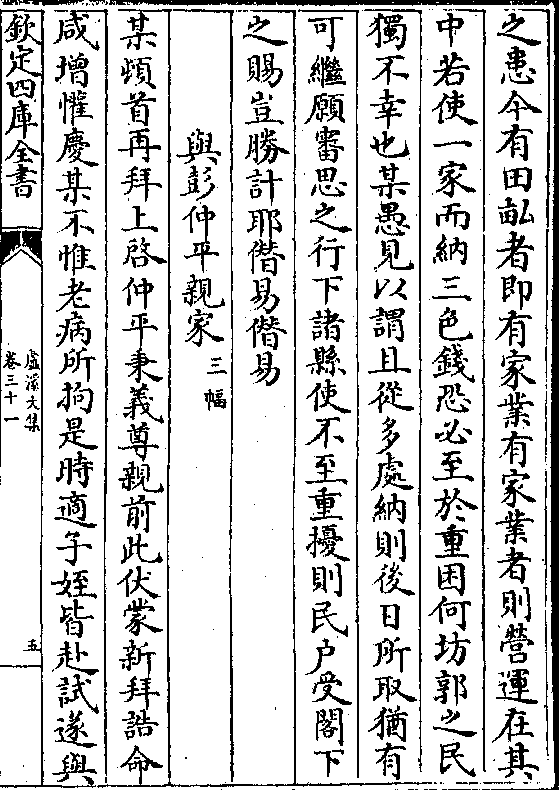 之患今有田畝者即有家業有家業者則營運在其
中若使一家而納三色錢恐必至於重困何坊郭之民
獨不幸也某愚見以謂且從多處納則後日所取猶有
可繼願審思之行下諸縣使不至重擾則民户受閣下
之賜豈勝計耶僭易僭易
與彭仲平親家三幅
某頓首再拜上啓仲平秉義尊親前此伏蒙新拜誥命
咸增懽慶某不惟老病所拘是時適子姪皆赴試遂與
欽定四庫全書
盧溪文集
卷三十一
五